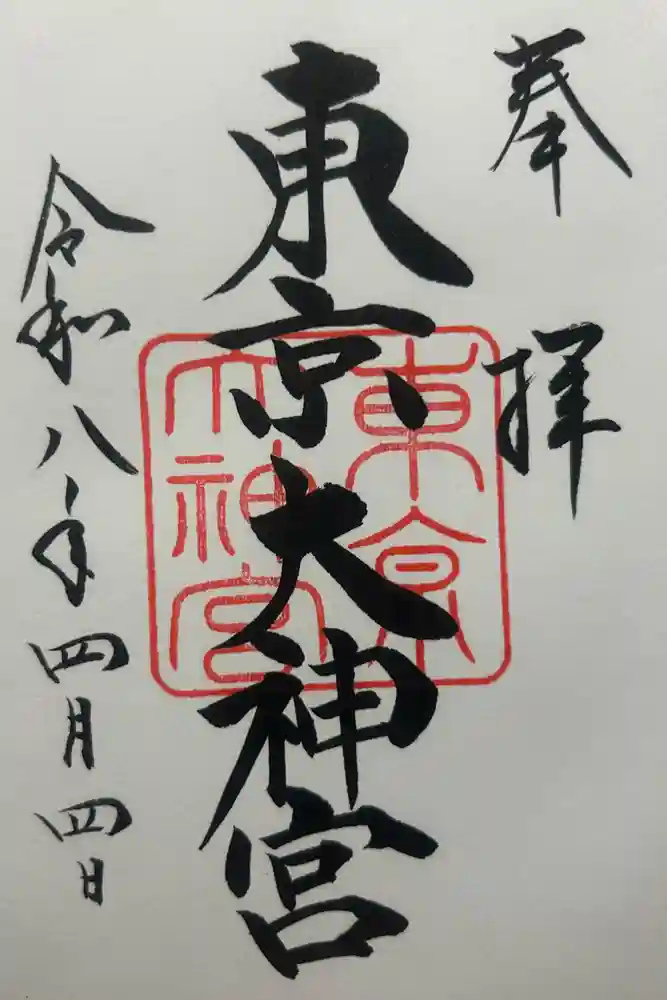 奉拝
東京大神宮
東京
大神宮
令和八年四月四日